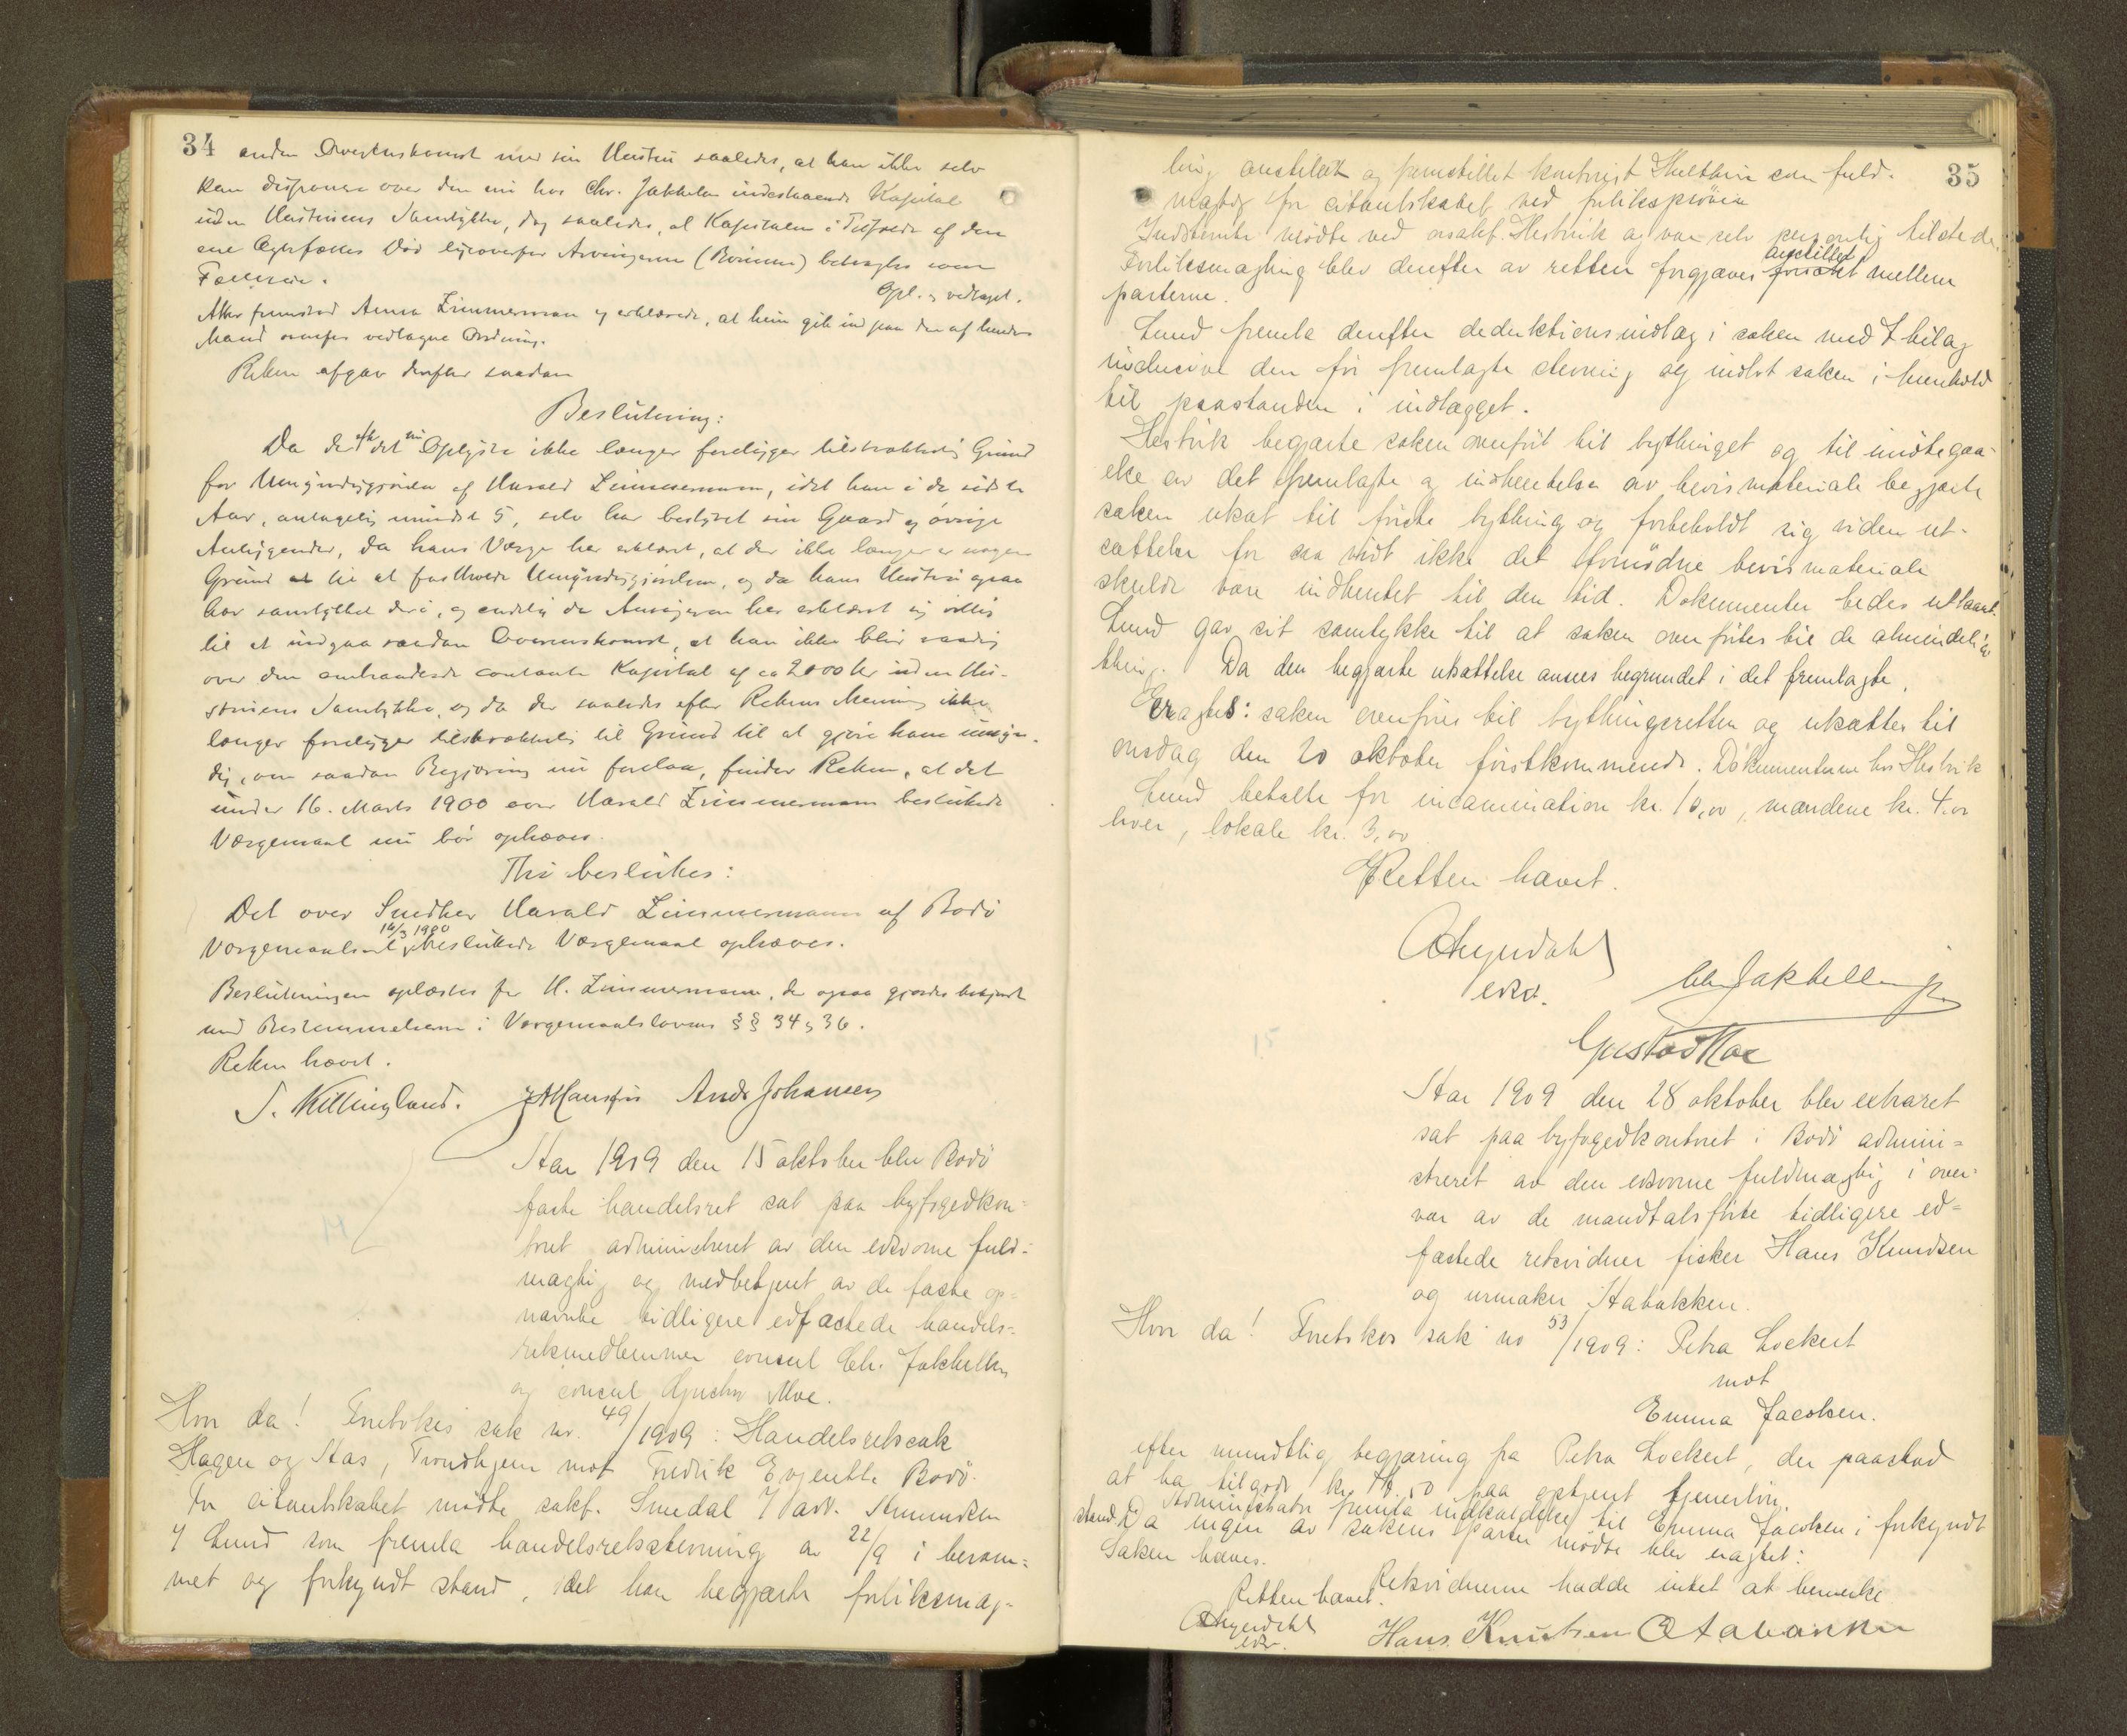 34
anden Overenskomst med sin Hustru saaledes, at han ikke selv
kan disponere over den nu hos Chr. Jakhelln indestaaende Kapital
uden Hustruens Samtykke, dog saaledes, at Kapitalen i Tilfælde af den
ene Ægtefælles Død ligeoverfor Arvingerne betragtes som
Fælleseie.
Opl. og vedtaget.
Atter fremstod Anna Zimmermann og erklærede, at hun gik ind paa den af hendes
Mand ovenfor vedtagne Ordning.
Retten afgav derefter saadan
Beslutning:
Da der efter det nu Oplyste ikke længer foreligger tilstrækkelig Grund
for Umyndiggjørelse af Harald Zimmermann, idet han i de sidste
Aar, antagelig mindst 5, selv har bestyret sin Gaard og øvrige
Anliggender, da hans Værge har erklæret, at der ikke længer er nogen
Grund til at fastholde Umyndiggjørelsen, og da hans Hustru ogsaa
har samtykket deri, og endelig da Andrageren har erklæret sig villig
til at indgaa saadan Overenskomst, at han ikke blir raadig
over den omhandlede contante Kapital af ca 2000 kr uden Hu-
struens Samtykke, og da der saaledes efter Rettens Mening ikke
længer foreligger tilstrækkelig til Grund til at gjøre ham umyn-
dig, om saadan Begjæring nu forelaa, finder Retten, at det
under 16. Marts 1900 over Harald Zimmermann besluttede
Værgemaal nu bør ophæves.
Thi besluttes:
Det over Snedker Harald Zimmermann af Bodø
16/3 1900
besluttede Værgemaal ophæves.
Beslutningen oplæstes for H. Zimmermann, der ogsaa gjordes bekjendt
med Bestemmelserne i Værgemaalslovens §§ 34 og 36.
Retten hævet.
S. Killingland. J. A. Hansen Andr Johansen
Aar 1909 den 15 oktober blev Bodø
faste handelsret sat paa byfogedkon-
toret administreret av den edsvorne fuld-
mægtig og medbetjent av de faste op-
nævnte tidligere edfæstede handels-
retsmedlemmer consul Ch. Jakhelln
og consul Gustav Moe.
Hvor da! Foretokes sak nr. 49/1909: Handelsretssak
Hagen og Aas, Trondhjem mot Fredrik Evjenth Bodø.
For citantskabet mødte sakf. Smedal v/ adv.
v/ Lund som fremla handelsretsstevning av 22/9 i beram-
met og forkyndt stand, idet han begjærte forliksmæg-
35
ling anstillet og fremstillet kontorist som fuld-
mægtig for citantskabet ved forliksprøven
Indstevnte mødte ved oraakf. Hestvik og var selv personlig tilstede.
Forliksmægling blev derefter av retten forgjæves anstillet mellem
parterne.
Lund fremla derefter deduktionsindlæg i saken med 7 bilag
inclusive den før fremlagte stevning og indlot saken i henhold
til paastanden i indlægget.
Hestvik begjærte saken overført til bythinget og til imøtegaa-
else av det fremlagte og indhentelse av bevismateriale begjærte
saken utsat til første bything og forbeholdt sig videre ut-
sættelse for saa vidt ikke det fornødne bevismateriale
skulde være indhentet til den tid. Dokumenter bedes utlaant.
Lund gav sit samtykke til at saken overføres til de almindelige
thing. Da den begjærte utsættelse ansees begrundet i det fremlagte,
Eragtes: saken overføres til bythingsretten og utsættes til
onsdag den 20 oktober førstkommende. Dokumenterne hos Hestvik
Lund betalte for incamination kr. 10,00, mændene kr. 4.00
hver, lokale kr. 3,00
Retten hævet.
edsv.
Ch Jakhelln jr.
Gustav Moe
Aar 1909 den 28 oktober blev extraret
sat paa byfogedkontoret i Bodø admini-
streret av den edsvorne fuldmægtig i over-
vær av de mandtalsførte tidligere ed-
fæstede retsvidner fisker Hans Knudsen
og urmaker Stabakken.
Hvor da! Foretokes sak no 53/1909: Petra Lockert
mot
Emma Jacobsen.
efter mundtlig begjæring fra Petra Lockert, der paastod
at ha tilgode kr. 50 paa optjent tjenerløn.
Administrator fremla indkaldelse til Emma Jacobsen i forkyndt
stand. Da ingen av sakens parter mødte blev eragtet:
Saken hæves.
Retsvidnerne hadde intet at bemerke
Retten hævet.
edsv.
Hans Knutsen O Stabakken